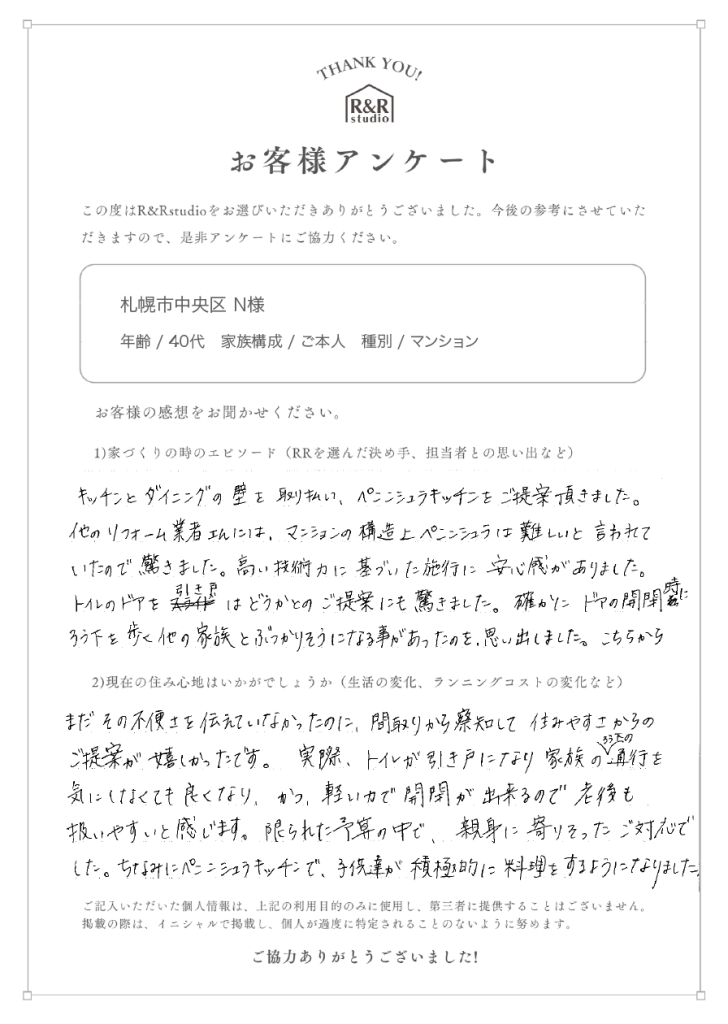 THANK YOU!
R&R
studio
お客様アンケート
この度はR&Rstudioをお選びいただきありがとうございました。今後の参考にさせていた
だきますので、是非アンケートにご協力ください。
札幌市中央区 N様
年齢 / 40代　家族構成 / ご本人　種別 / マンション
お客様の感想をお聞かせください。
1)家づくりの時のエピソード（RRを選んだ決め手、担当者との思い出など）
キッチンとダイニングの壁を取り払い、ペニンシュラキッチンをご提案頂きました。
他のリフォーム業者さんには、マンションの構造上ペニンシュラは難しいと言われて
いたので驚きました。高い技術力に基づいた施行に安心感がありました。
トイレのドアを引き戸はどうかとのご提案にも驚きました。確かにドアの開閉時に
ろう下を歩く他の家族とぶつかりそうになる事があったのを、思い出しました。こちらから
2)現在の住み心地はいかがでしょうか（生活の変化、ランニングコストの変化など）
まだその不便さを伝えていなかったのに、間取りから察知して住みやすさからの
ご提案が嬉しかったです。実際、トイレが引き戸になり家族のろう下の通行を
気にしなくても良くなり、かつ、軽い力で開閉が出来るので老後も
扱いやすいと感じます。限られた予算の中で、親身に寄りそったご対応で
した。ちなみにペニンシュラキッチンで、子供達が積極的に料理をするようになりました。
ご記入いただいた個人情報は、上記の利用目的のみに使用し、第三者に提供することはございません。
掲載の際は、イニシャルで掲載し、個人が過度に特定されることのないように努めます。
ご協力ありがとうございました!